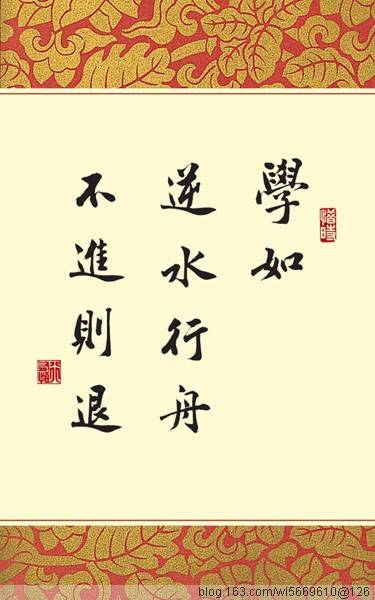 學如
逆水行舟
不進則退
惜時
blog.163.com/wl5669610@126